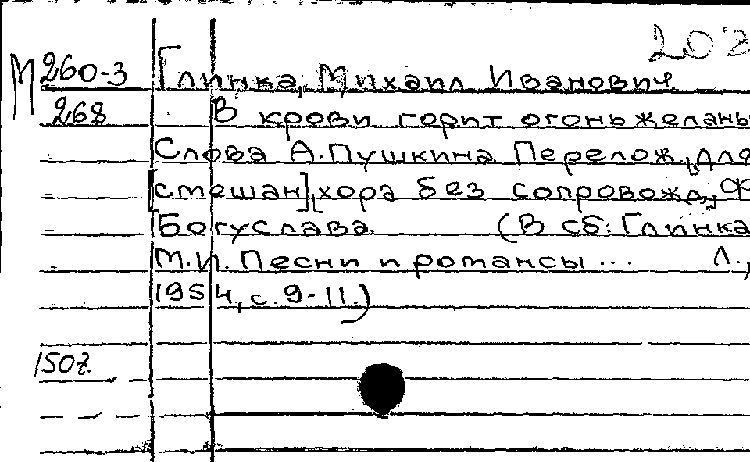 203
М 260-3 Глинка, Михаил Иванович.
268 В крови горит огонь желань
Слова А. Пушкина. Перелож. для
[смешан] хора без сопровожд., Ф
Богуслава. (В сб: Глинка
М.И. Песни и романсы ... Л.,
1954, с. 9-11.)
150г.